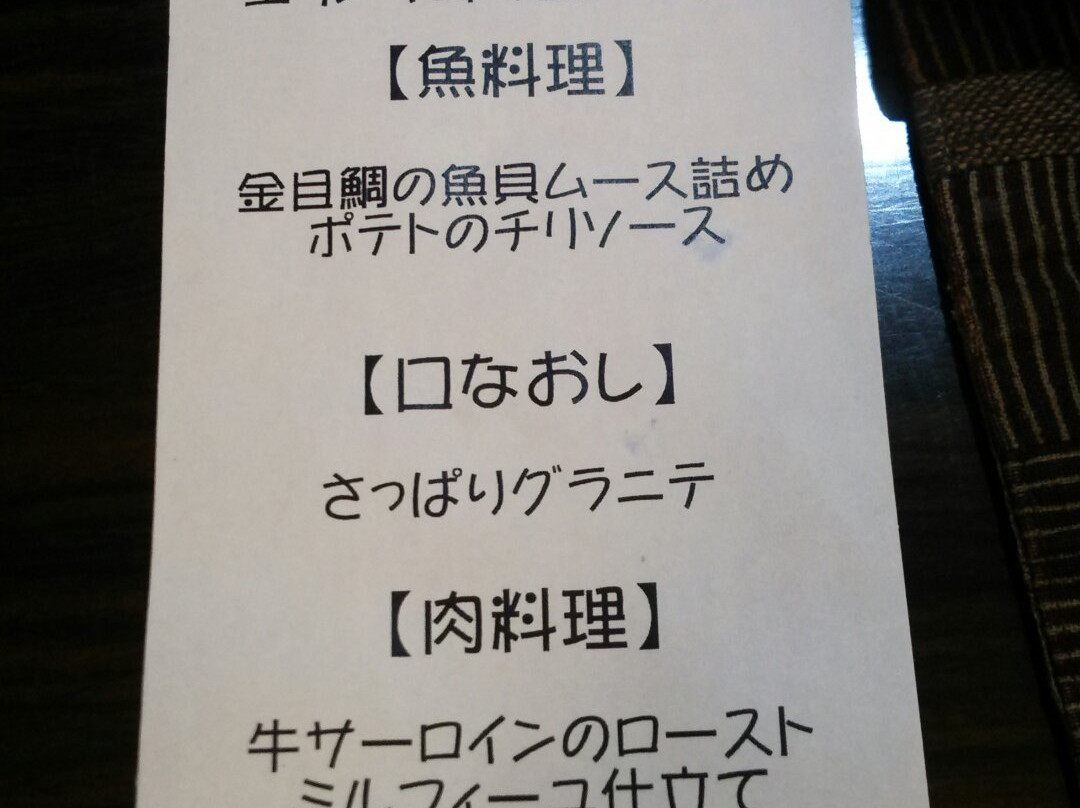 【魚料理】
金目鯛の魚貝ムース詰め
ポテトのチリソース
【口なおし】
さっぱりグラニテ
【肉料理】
牛サーロインのロースト
ミルフィーユ仕立て